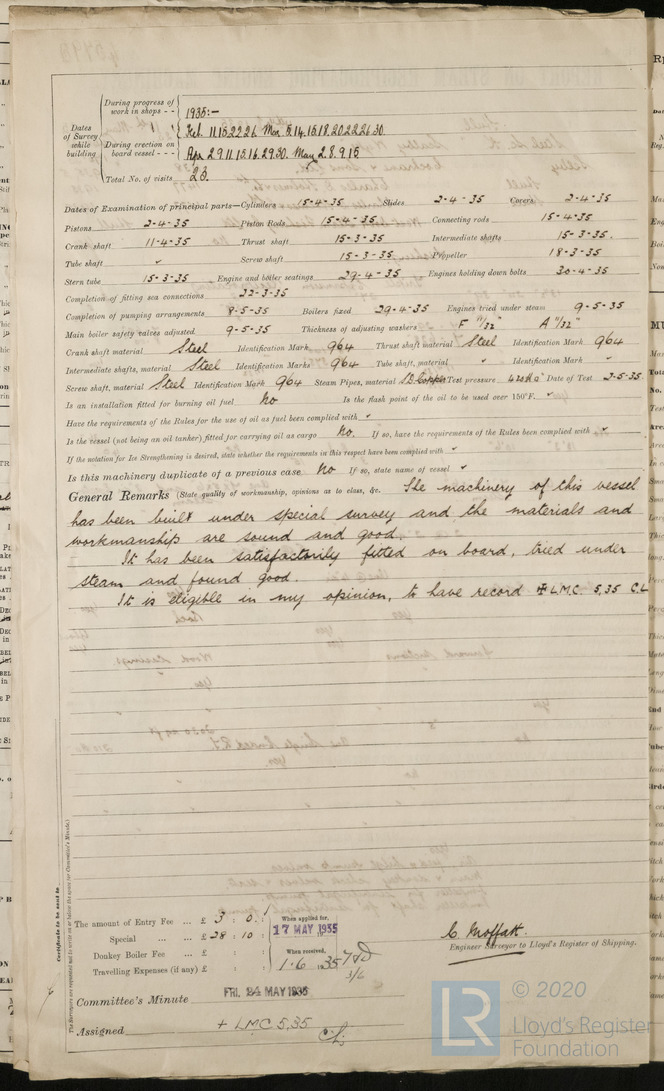 During progress of work in shops - -
1935:-
Feb. 11.15.22.26. Mar. 5.14.15.18.20.22.26.30.
Dates of Survey while building
During erection on board vessel - - -
Apr 2.9.11.15.16.29.30. May 2.8.9.15
Total No. of visits 23.
Dates of Examination of principal parts—Cylinders 15-4-35 Slides 2-4-35 Covers 2-4-35
Pistons 2-4-35 Piston Rods 15-4-35 Connecting rods 15-4-35
Crank shaft 11-4-35 Thrust shaft 15-3-35 Intermediate shafts 15-3-35.
Tube shaft Screw shaft 15-3-35 Propeller 18-3-35
Stern tube 15-3-35 Engine and boiler seatings 29-4-35 Engines holding down bolts 30-4-35
Completion of fitting sea connections 22-3-35
Completion of pumping arrangements 8-5-35 Boilers fixed 29-4-35 Engines tried under steam 9-5-35
Main boiler safety valves adjusted 9-5-35 Thickness of adjusting washers F 11/32 A 11/32"
Crank shaft material Steel Identification Mark 964 Thrust shaft material Steel Identification Mark 964
Intermediate shafts, material Steel Identification Marks 964 Tube shaft, material " Identification Mark "
Screw shaft, material Steel Identification Mark 964 Steam Pipes, material Copper Test pressure Date of Test 2-5-35
Is an installation fitted for burning oil fuel No Is the flash point of the oil to be used over 150°F.
Have the requirements of the Rules for the use of oil as fuel been complied with
Is the vessel (not being an oil tanker) fitted for carrying oil as cargo No. If so, have the requirements of the Rules been complied with
If the notation for Ice Strengthening is desired, state whether the requirements in this respect have been complied with
Is this machinery duplicate of a previous case No If so, state name of vessel
General Remarks (State quality of workmanship, opinions as to class, &c. The machinery of this vessel
has been built under special survey and the materials and
workmanship are sound and good.
It has been satisfactorily fitted on board, tried under
steam and found good.
It is eligible in my opinion, to have record ✠ LMC. 5,35 C.L
Certificate to be sent to
The Surveyors are requested not to write on or below the space for Committee's Minute.
The amount of Entry Fee ... £ 3 : 0 :
Special ... ... £ 28 : 10 :
Donkey Boiler Fee ... £ : :
Travelling Expenses (if any) £ : :
When applied for,
17 MAY 1935
When received,
1.6.35
C. Moffatt.
Engineer Surveyor to Lloyd's Register of Shipping.
Committee's Minute FRI. 24 MAY 1935
Assigned + LMC 5,35
© 2020
LR
Lloyd's Register
Foundation